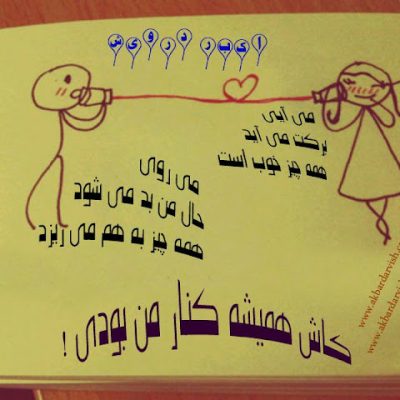 اکبر درویش
می آیی
برکت می آید
همه چیز خوب است
می روی
حال من بد می شود
همه چیز به هم می ریزد
کاش همیشه کنار من بودی !
www.akbardarvish.
www.akbardarvish.